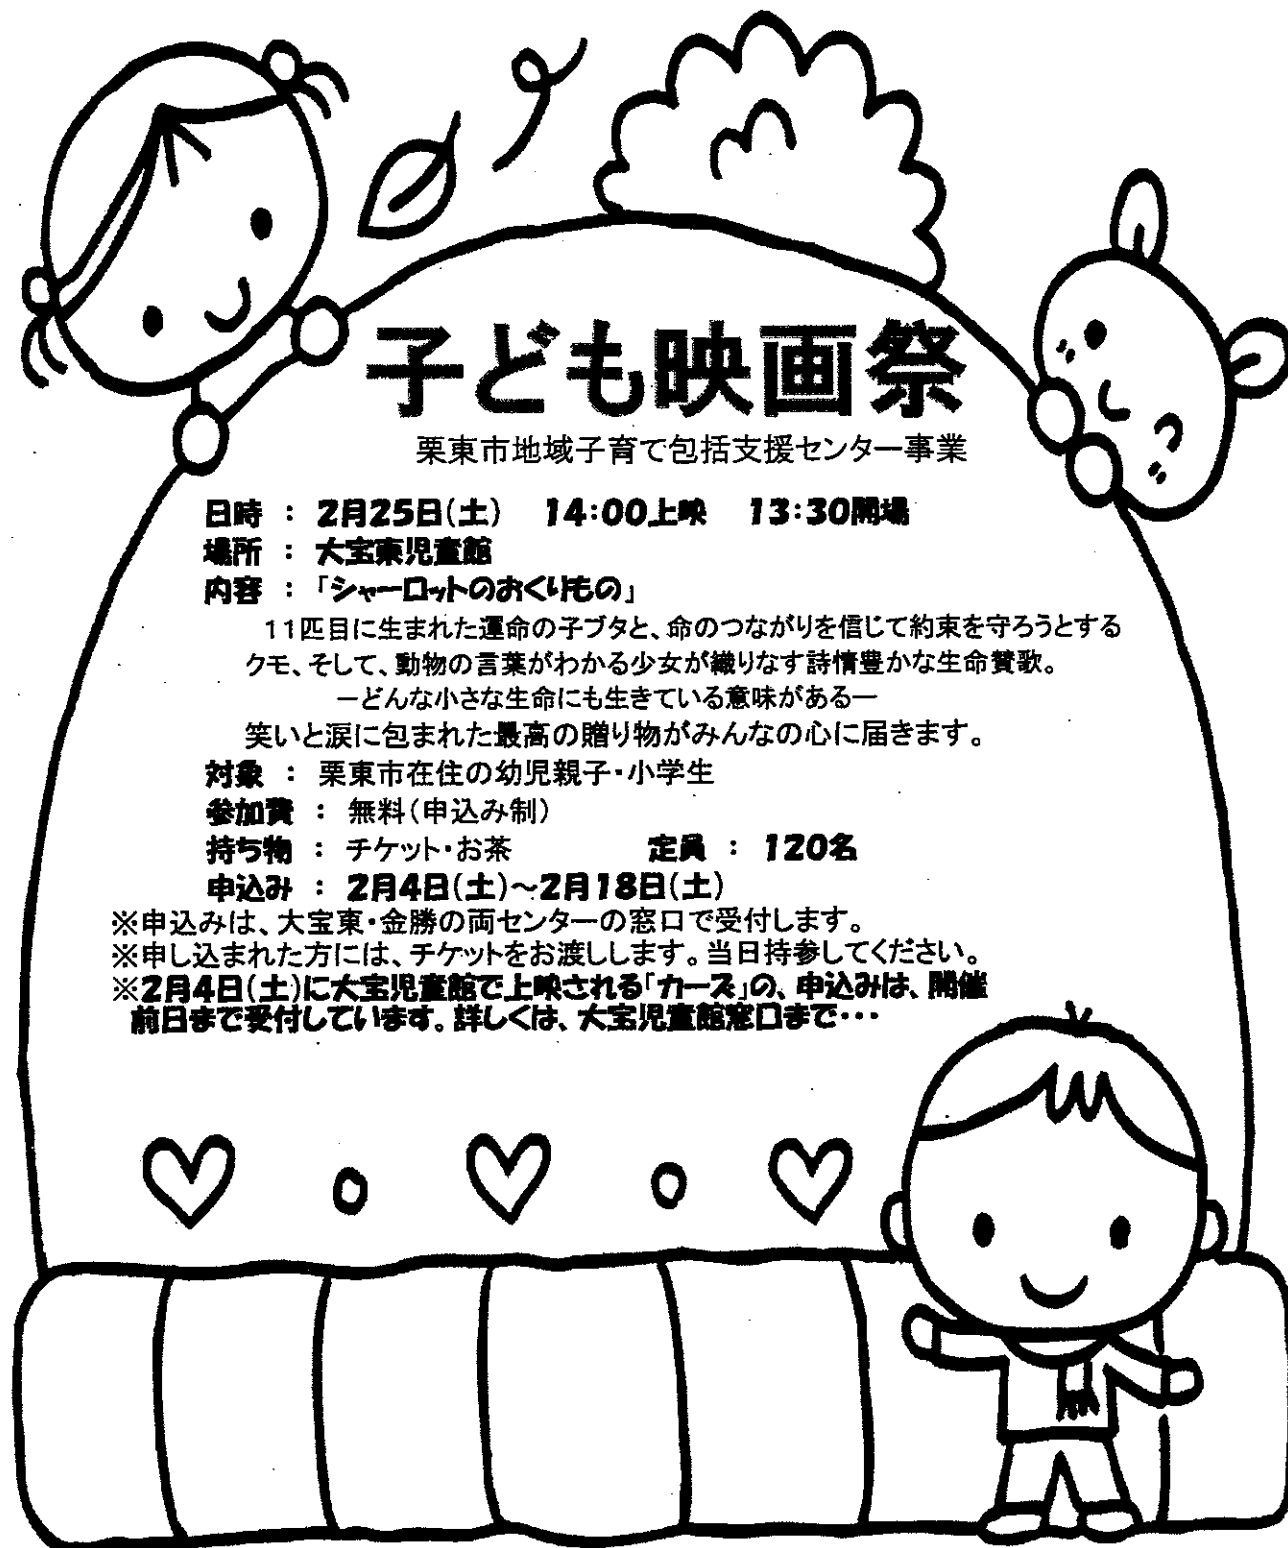 子ども映画祭
栗東市地域子育て包括支援センター事業
日時 : 2月25日(土) 14:00上映 13:30開場
場所 : 大宝東児童館
内容 : 「シャーロットのおくりもの」
11匹目に生まれた運命の子ブタと、命のつながりを信じて約束を守ろうとする
クモ、そして、動物の言葉がわかる少女が織りなす詩情豊かな生命賛歌。
―どんな小さな生命にも生きている意味がある―
笑いと涙に包まれた最高の贈り物がみんなの心に届きます。
対象 : 栗東市在住の幼児親子・小学生
参加費 : 無料(申込み制)
持ち物 : チケット・お茶 定員 : 120名
申込み : 2月4日(土)～2月18日(土)
※申込みは、大宝東・金勝の両センターの窓口で受付します。
※申し込まれた方には、チケットをお渡しします。当日持参してください。
※2月4日(土)に大宝児童館で上映される「カーズ」の、申込みは、開催
前日まで受付しています。詳しくは、大宝児童館窓口まで・・・